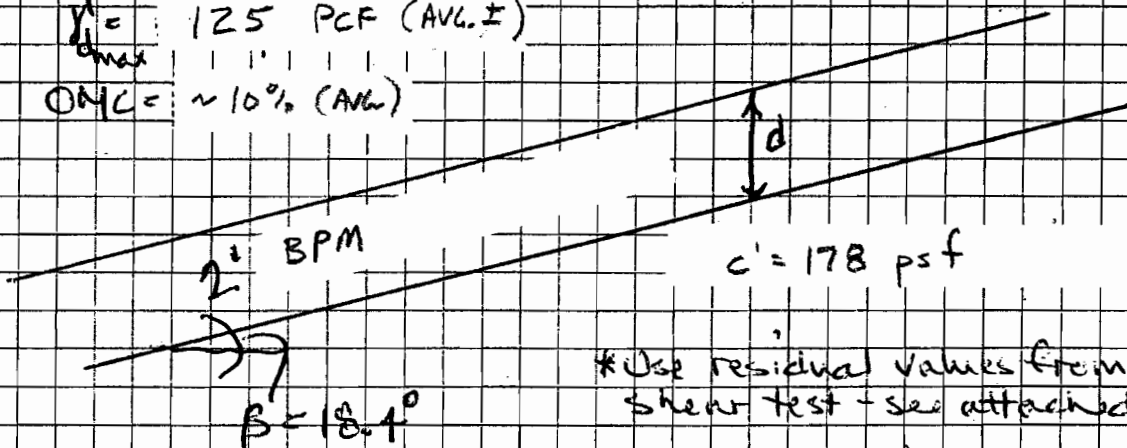 γ dmax = 125 PCF (AVG. ±)
OMC = ~10% (AVG)
d
BPM
2'
c' = 178 psf
β = 18.4°
*Use residual values from
shear test - see attached